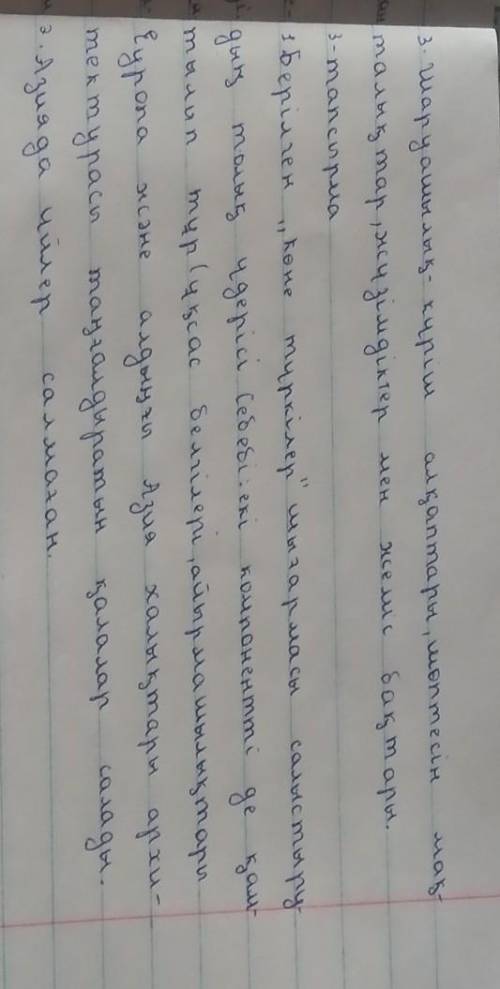 3. Шаруашылық - күріш алқаптары, шөптесін мақ-
талықтар, жүзімдіктер мен жеміс бақтары.
3-тапсырма
1. Берілген „көне түркілер" шығармасы салыстыру-
дың толық үдерісі себебі: екі компонентті де қам-
тылып тұр (ұқсас белгілері, айырмашылықтары
Еуропа және алдыңғы Азия халықтары архи-
тектурасы таңғалдыратын қалалар салады.
2. Азияда үйлер салмаған.